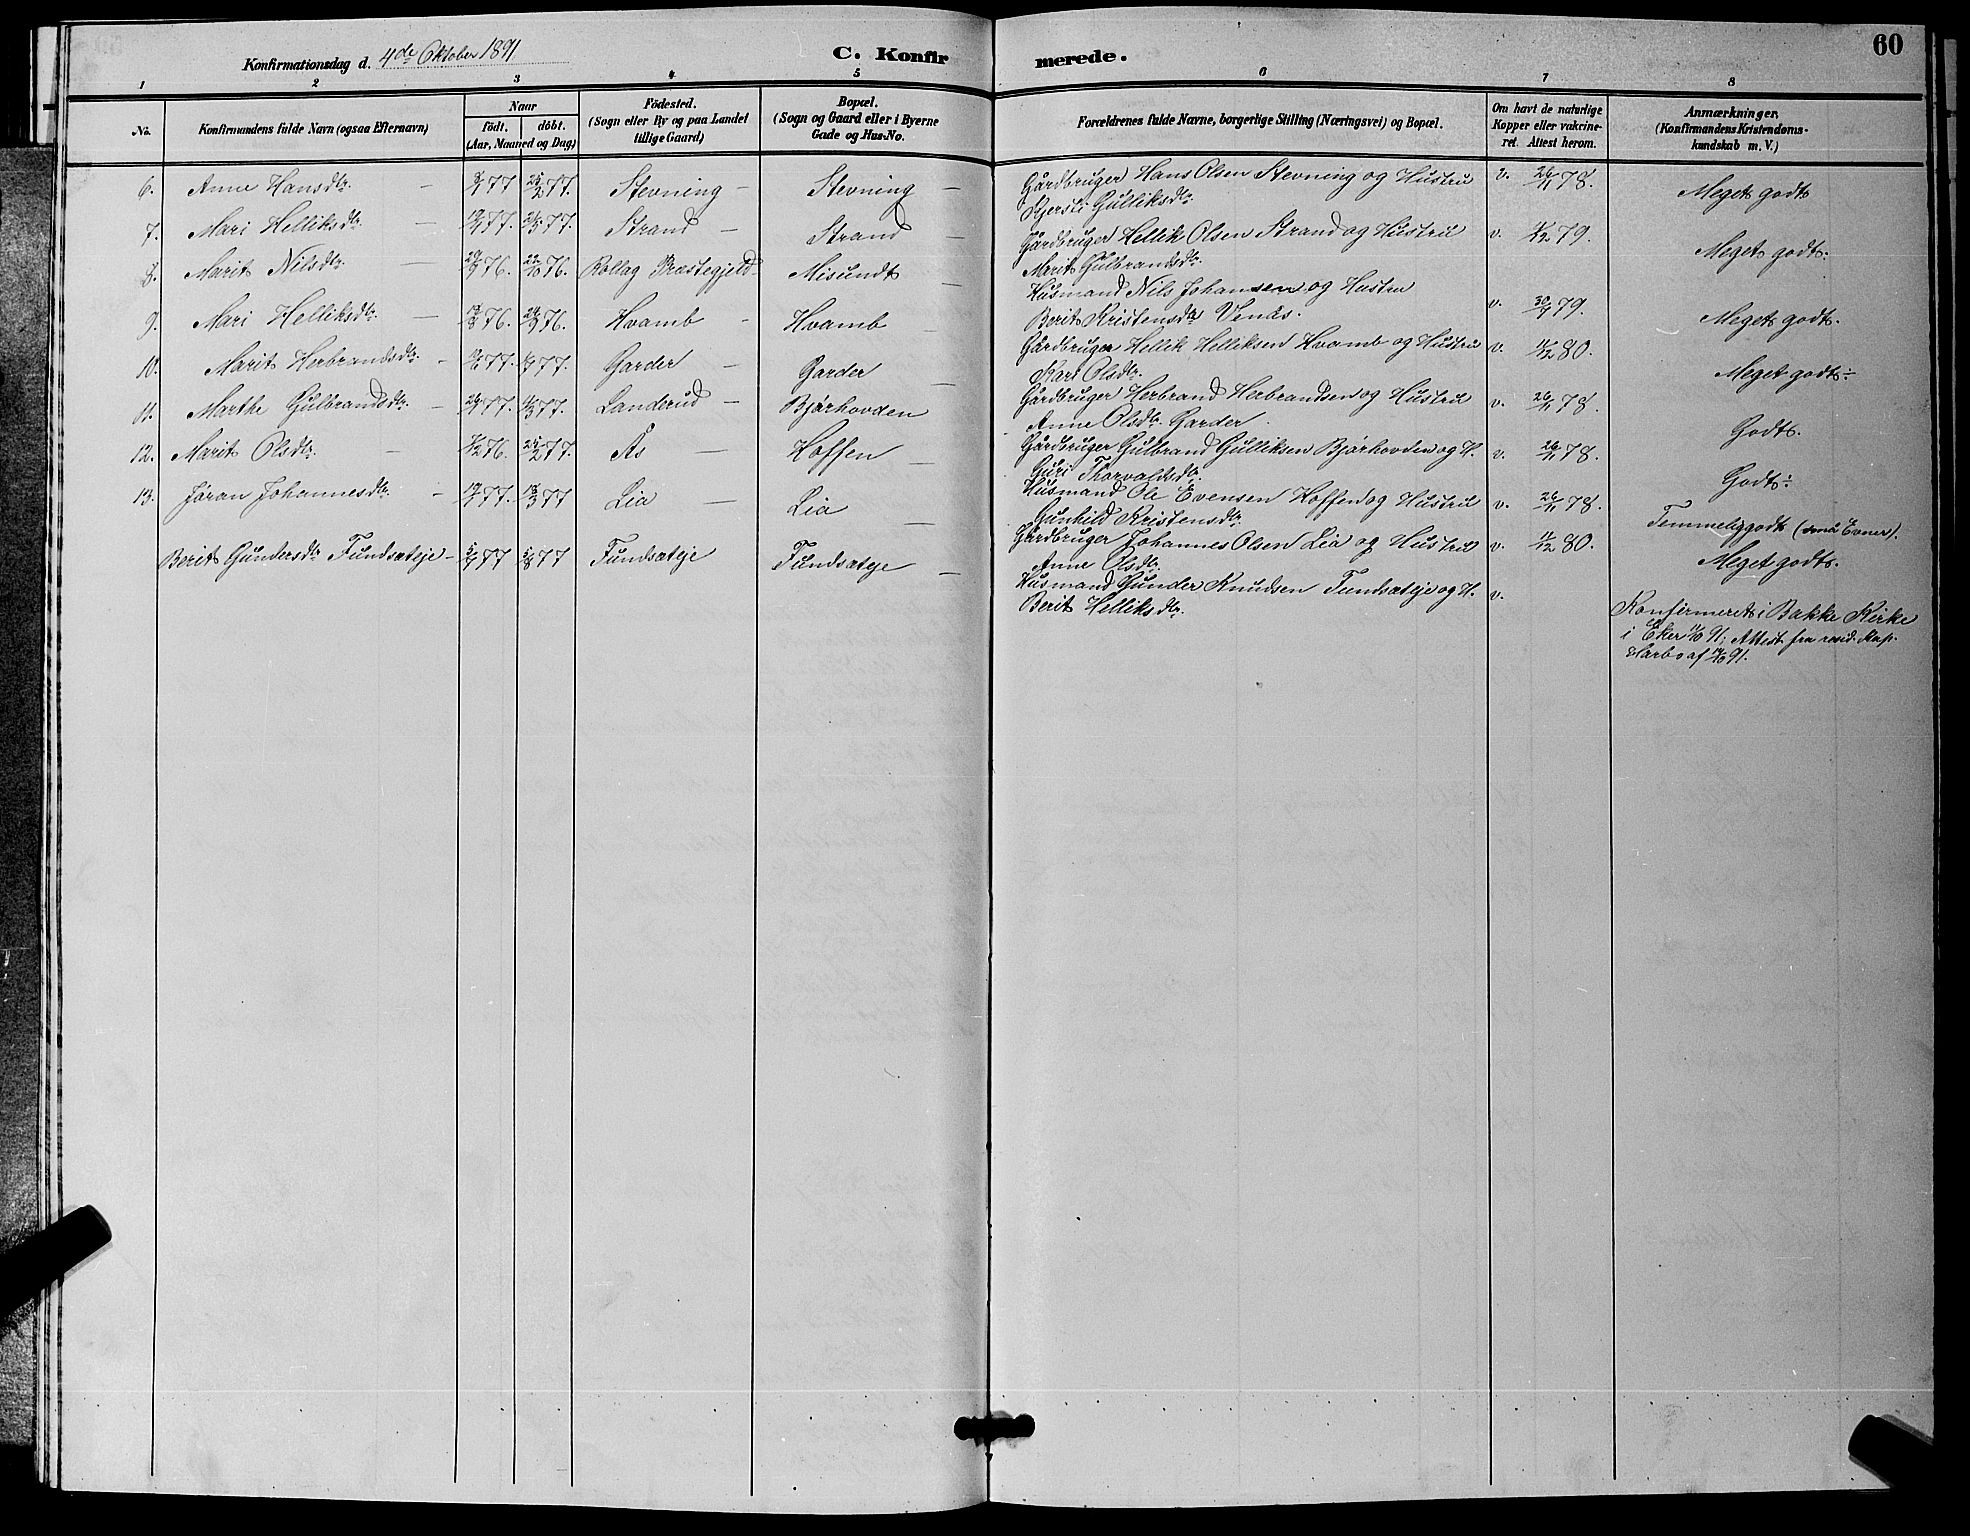 60
Konfirmationsdag d. 4de Oktober 1891
C. Konfirmerede.
1 2 3 4 5 6 7 8
No.
Konfirmandens fulde Navn (ogsaa Efternavn)
Naar
født. døbt.
(Aar, Maaned og Dag)
Fødested.
(Sogn eller By og paa Landet
tillige Gaard)
Bopæl.
(Sogn og Gaard eller i Byerne
Gade og Hus-No.
Forældrenes fulde Navne, borgerlige Stilling (Næringsvei) og Bopæl.
Om havt de naturlige
Kopper eller vakcine-
ret. Attest herom.
Anmærkninger.
(Konfirmandens Kristendoms-
kundskab m. V.)
6. Anne Hansdtr. — 77 25/2 77. Stevning — Stevning — Gårdbruger Hans Olsen Stevning og Hustru v. 26/11 78. Meget godt
Kjersti Gulliksdtr.
7. Mari Helliksdtr. — 77. 77. Strand — Strand — Gårdbruger Hellik Olsen Strand og Hustru v. 79. Meget godt.
Marit Gulbrandsdtr.
8. Marit Nilsdtr. — 29/9 76. 22/10 76. Rollag Præstegjeld — Misundt — Husmand Nils Johansen og Hustru v. 79. Meget godt.
Berit Kristensdtr. Venås.
9. Mari Helliksdtr. — 76. 24/9 76. Hvamb — Hvamb — Gårdbruger Hellik Helliksen Hvamb og Hustru v. 11/12 80. Meget godt ÷
Kari Olsdtr.
10. Marit Herbrandsdtr. — 77. 77. Garder — Garder — Gårdbruger Herbrand Herbrandsen og Hustru v. 26/11 78. Godt.
Anne Olsdtr. Garder.
11. Marthe Gulbrandsdtr. — 77. 77. Landerud — Bjørhovden Gårdbruger Gulbrand Gulliksen Bjørhovden og H. v. 26/11 78. Godt ÷
Guri Thorvaldsdtr.
12. Marit Olsdtr. — 76. 25/2 77. Ås — Hoffen — Husmand Ole Evensen Hoffen og Hustru v. 26/11 78. Temmelig godt (små Evner).
Gunhild Kristensdtr.
13. Jøran Johannesdtr. — 77. 18/3 77 Lia — Lia — Gårdbruger Johannes Olsen Lia og Hustru v. 11/12 80. Meget godt.
Anne Olsdtr.
Berit Gundersdtr. Fundsæteje — 77 77 Fundsæteje Fundsæteje — Husmand Gunder Knudsen Fundsæteje og H. v.
Berit Helliksdtr.
Konfirmeret i Bakke Kirke
i Eker 91; Attest fra resid. Kap.
Harbo af 91.